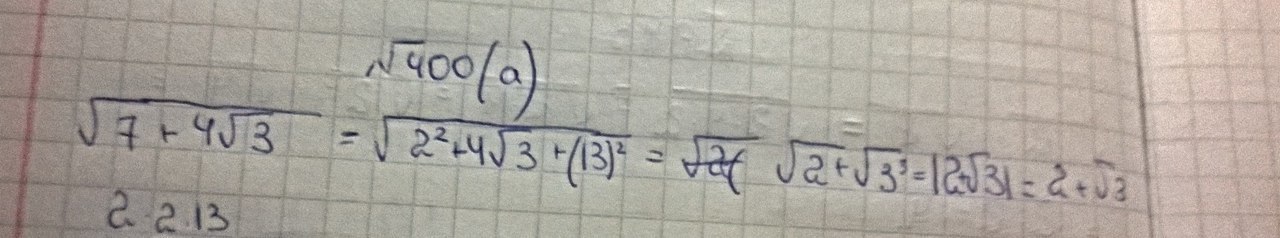 √400(a)
√7+4√3 = √2²+4√3+(13)² = √2( √2+√3³ = |2+√3| = 2+√3
2·2·13